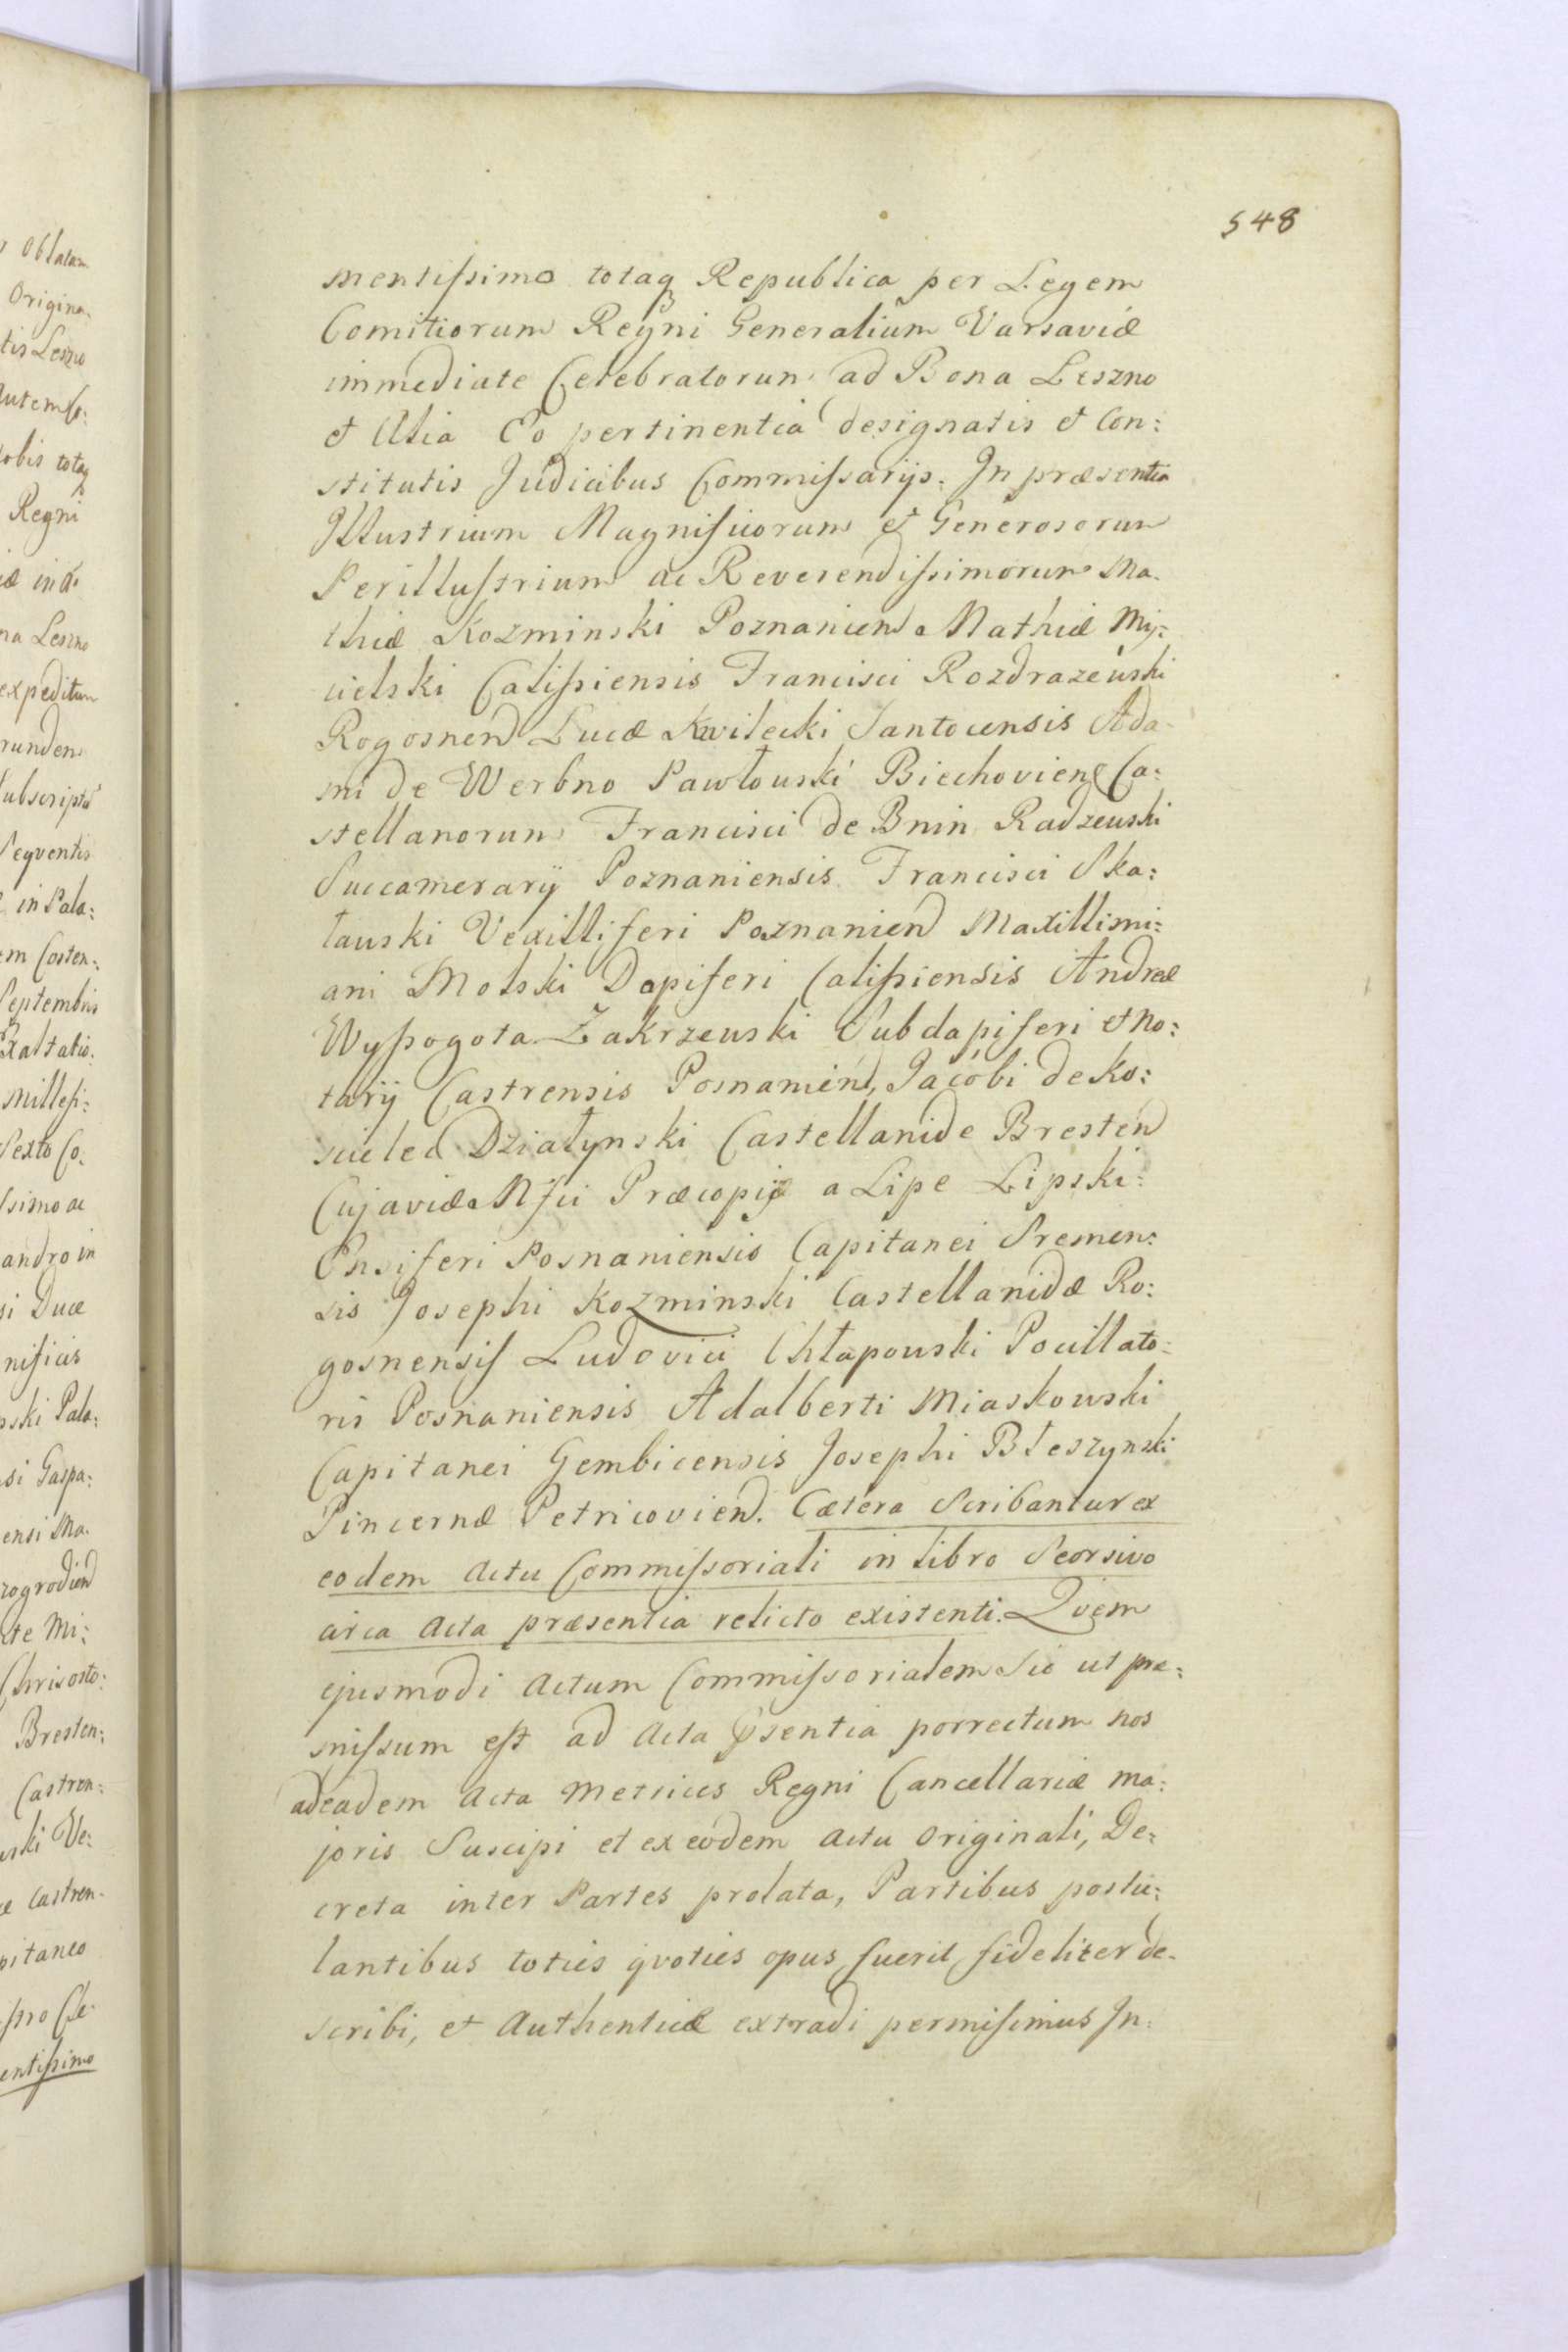 548
mentissimo totaq Republica per Legem
Comitiorum Regni Generalium Varsaviæ
immediate Celebratorum ad Bona Leszno
et Alia Eo pertinentia designatis et Con:
stitutis Judicibus Commissarijs. In præsentia
Illustrium Magnificorum et Generosorum
Perillustrium ac Reverendissimorum Ma.
thiæ Kozminski Poznanien Mathiæ My:
cielski Calissiensis Francisci Rozdrazewski
Rogosnen Lucæ Kwilecki Santocensis Ada
mi de Werbno Pawłouski Biechovien Ca:
stellanorum Francisci de Bnin Radzeuski
Succamerarij Poznaniensis Francisci Ska:
łauski Vexilliferi Poznanien Maxillimi:
ani Molski Dapiferi Calissiensis Andreæ
Wyssogota Zakrzeuski Subdapiferi et No:
tarij Castrensis Posnanien, Jacobi de Ko:
scielec Działynski Castellanide Bresten
Cujaviæ Nsci Præcopij a Lipe Lipski:
Ensiferi Posnaniensis Capitanei Sremen:
sis Josephi Kozminski Castellanidæ Ro:
gosnensis Ludovici Chłapouski Pocillato:
ris Posnaniensis Adalberti Miaskouski
Capitanei Gembicensis Josephi Błeszynski
Pincernæ Petricovien. Cætera Scribantur ex
eodem Actu Commissoriali in libro Seorsivo
circa Acta præsentia relicto existenti. Qvem
ejusmodi Actum Commissorialem Sic ut præ:
missum est ad Acta psentia porrectum nos
ad eadem Acta Metrices Regni Cancellariæ ma:
joris Suscipi et ex eodem Actu Originali, De:
creta inter Partes prolata, Partibus postu:
lantibus toties qvoties opus fuerit fideliter de.
scribi, et Authenticæ extradi permisimus In: